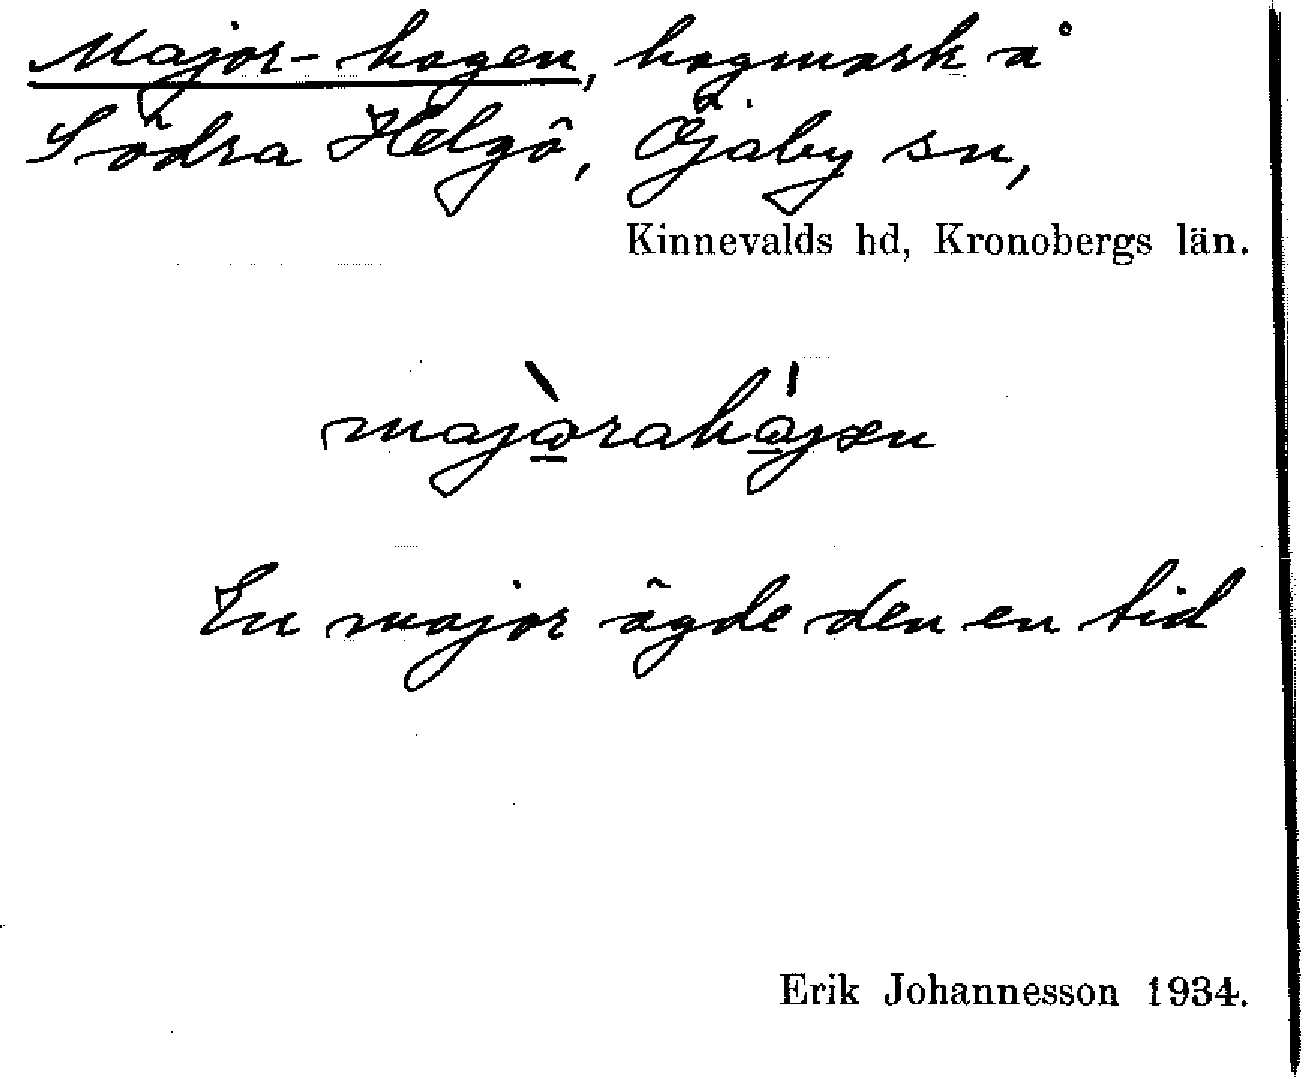 Major-hagen, hagmark å
Södra Helgö, Öjaby sn,
Kinnevalds hd, Kronobergs län.
En major ägde den en tid
Erik Johannesson 1934.